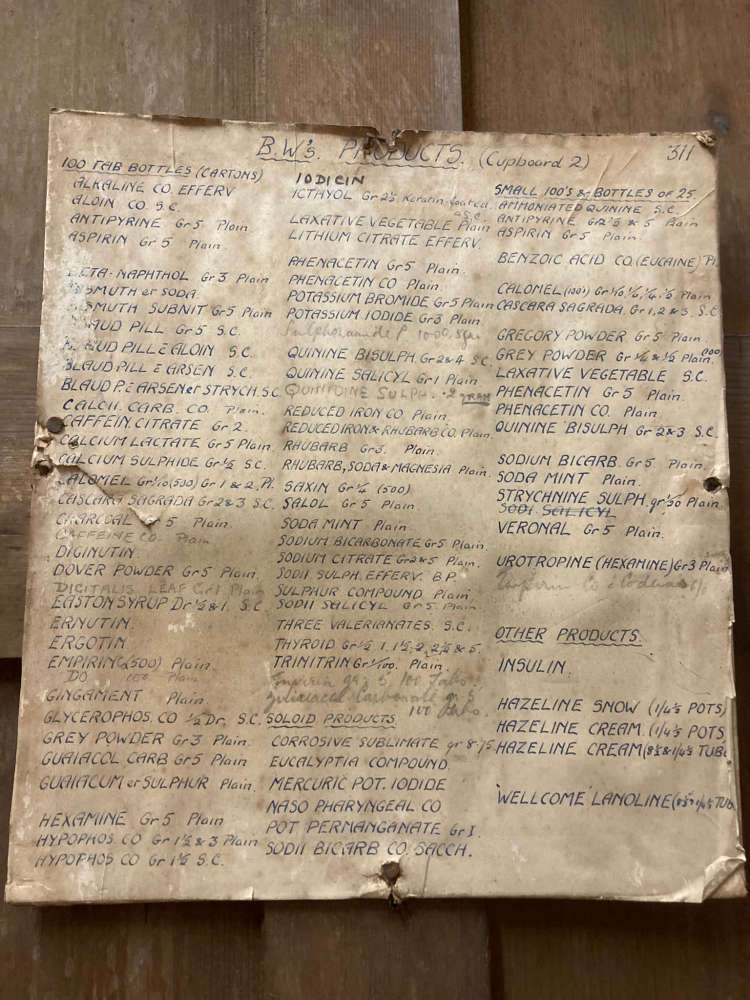 B.W's. PRODUCTS. (Cupboard 2) 311
100 TAB BOTTLES (CARTONS)
ALKALINE CO. EFFERV
ALOIN CO. S.C.
ANTIPYRINE Gr 5 Plain
ASPIRIN Gr 5 Plain.
BETA-NAPHTHOL Gr 3 Plain
BISMUTH et SODA.
BISMUTH SUBNIT Gr 5 Plain
BLAUD PILL Gr 5 S.C.
BLAUD PILL c̄ ALOIN S.C.
BLAUD PILL c̄ ARSEN S.C.
BLAUD P. c̄ ARSEN et STRYCH. S.C.
CALCII. CARB. CO. Plain.
CAFFEIN CITRATE Gr 2.
CALCIUM LACTATE Gr 5 Plain.
CALCIUM SULPHIDE Gr ½ S.C.
CALOMEL Gr 1/10 (500) Gr 1 & 2, Pl.
CASCARA SAGRADA Gr 2 & 3 S.C.
CHARCOAL 5 Plain.
CAFFEINE CO. Plain
DIGINUTIN.
DOVER POWDER Gr 5 Plain.
DIGITALIS LEAF Gr 1 Plain
EASTON SYRUP Dr ½ & 1. S.C.
ERNUTIN.
ERGOTIN.
EMPIRIN (500) Plain.
DO 100 Plain
GINGAMENT Plain
GLYCEROPHOS. CO ½ Dr. S.C.
GREY POWDER Gr 3 Plain.
GUAIACOL CARB Gr 5 Plain
GUAIACUM et SULPHUR Plain.
HEXAMINE Gr 5 Plain
HYPOPHOS. CO Gr 1½ & 3 Plain
HYPOPHOS CO Gr 1½ S.C.
IODICIN
ICTAYOL Gr 2½ Keratin Coated
S.C.
LAXATIVE VEGETABLE Plain
LITHIUM CITRATE EFFERV.
PHENACETIN Gr 5 Plain.
PHENACETIN CO Plain.
POTASSIUM BROMIDE Gr 5 Plain
POTASSIUM IODIDE Gr 3 Plain.
Sulphonamide P. 100
QUININE BISULPH. Gr 2 & 4 S.C.
QUININE SALICYL Gr 1 Plain.
QUINIDINE SULPH. .2 GRAM
REDUCED IRON CO Plain.
REDUCED IRON & RHUBARB CO. Plain.
RHUBARB Gr 3. Plain.
RHUBARB, SODA & MAGNESIA Plain.
SAXIN Gr ¼ (500)
SALOL Gr 5 Plain.
SODA MINT Plain.
SODIUM BICARBONATE Gr 5 Plain.
SODIUM CITRATE Gr 2 & 5 Plain.
SODII SULPH. EFFERV. B.P.
SULPHUR COMPOUND. Plain.
SODII SALICYL Gr 5 Plain.
THREE VALERIANATES. S.C.
THYROID Gr ½ 1, 1½, 2, 2½ & 5.
TRINITRIN Gr 1/100. Plain.
gr 5. 100 Tabs.
Carbonate gr 5
100 Tabs.
SOLOID PRODUCTS
CORROSIVE SUBLIMATE gr 8.75
EUCALYPTIA COMPOUND.
MERCURIC POT. IODIDE
NASO PHARYNGEAL CO
POT PERMANGANATE Gr I.
SODII BICARB CO. SACCH.
SMALL 100'S & BOTTLES OF 25
AMMONIATED QUININE S.C.
ANTIPYRINE Gr 2½ & 5 Plain
ASPIRIN Gr 5 Plain.
BENZOIC ACID CO. (EUCAINE) Pl.
CALOMEL (100's) Gr
CASCARA SAGRADA. Gr 1, 2 & 3. S.C.
GREGORY POWDER Gr 5 Plain
GREY POWDER Gr ¼ & ½ Plain
LAXATIVE VEGETABLE S.C.
PHENACETIN Gr 5 Plain.
PHENACETIN CO. Plain.
QUININE BISULPH Gr 2 & 3 S.C.
SODIUM BICARB. Gr 5 Plain.
SODA MINT Plain.
STRYCHNINE SULPH. gr 1/30 Plain
SODI. SALICYL
VERONAL Gr 5 Plain.
UROTROPINE (HEXAMINE) Gr 3 Plain
Co c̄ Codeine
OTHER PRODUCTS.
INSULIN.
HAZELINE SNOW (1/4's POTS)
HAZELINE CREAM. (1/4's POTS)
HAZELINE CREAM (8½ & 1/4's TUB
'WELLCOME' LANOLINE